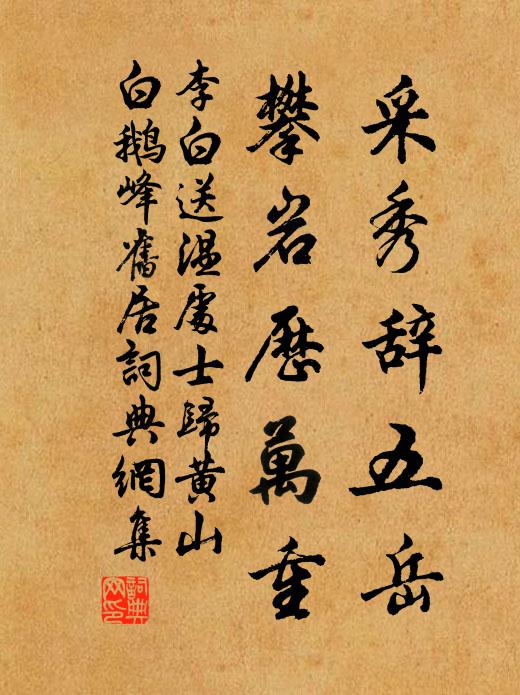 采秀辞五岳
攀岩歷萬重
李白送温處士歸黄山
白鵝峰舊居詞典網集
詞典
网印